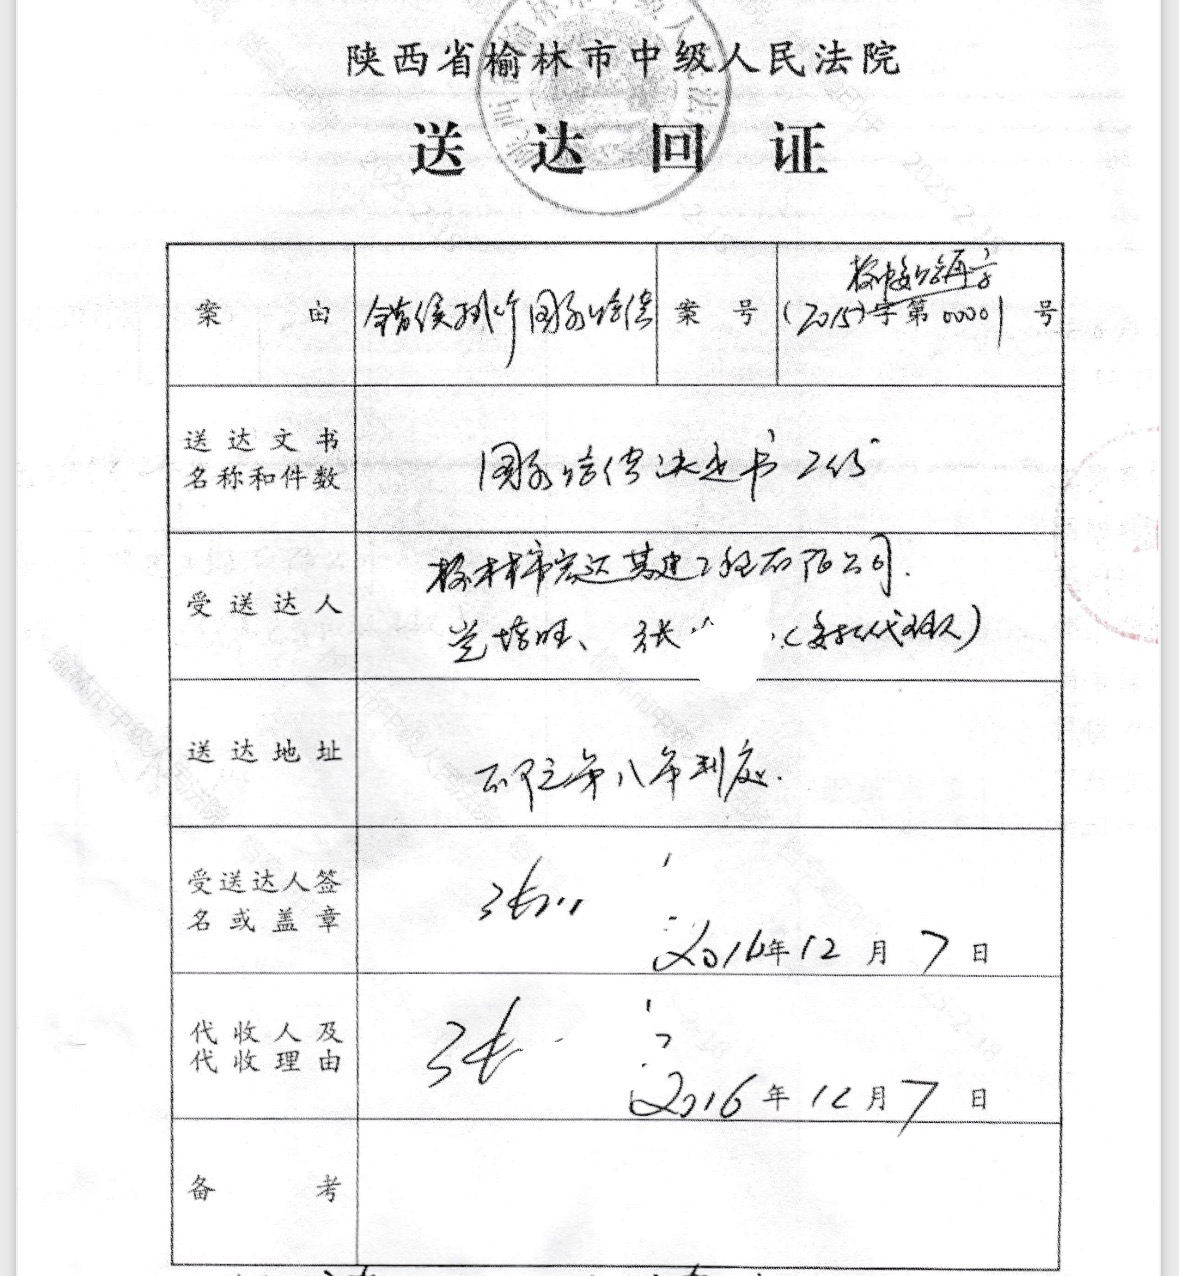 陕西省榆林市中级人民法院
送达回证
案由 错误执行国家赔偿 案号 榆中委赔再字
(2015)字第00001号
送达文书
名称和件数
国家赔偿决定书二份
受送达人
榆林市宏达基建工程有限公司.
党培旺、张 (委托代理人)
送达地址
受送达人签
名或盖章
张
2016年12月7日
代收人及
代收理由
张
2016年12月7日
备考
2025-2-18
榆林市中级人民法院